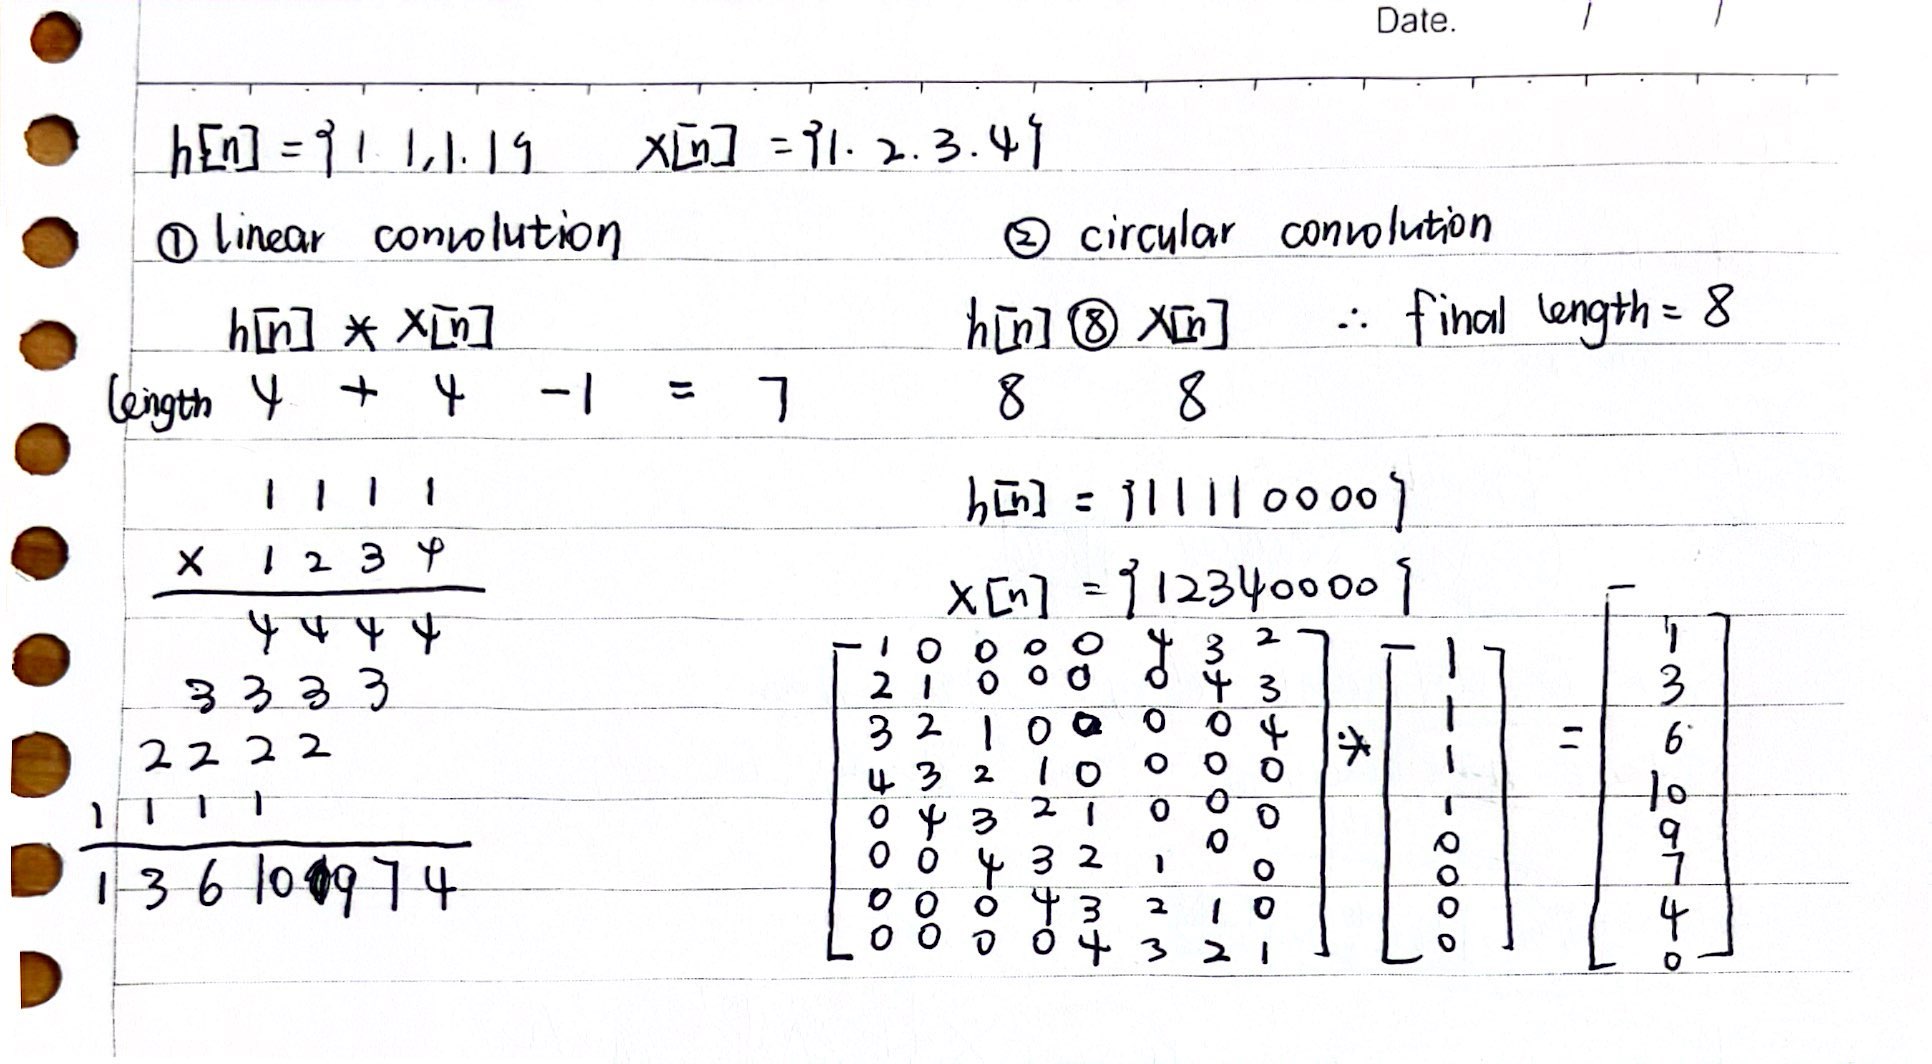 Date. / /
h[n] = {1. 1, 1. 1} x[n] = {1. 2. 3. 4}
① linear convolution ② circular convolution
h[n] * x[n] h[n] ⑧ x[n] ∴ final length = 8
length 4 + 4 -1 = 7 8 8
1 1 1 1
x 1 2 3 4
4 4 4 4
3 3 3 3
2 2 2 2
1 1 1 1
1 3 6 10 9 7 4
h[n] = {11110000}
x[n] = {12340000}
1 0 0 0 0 4 3 2 1 1
2 1 0 0 0 0 4 3 1 3
3 2 1 0 0 0 0 4 * 1 = 6
4 3 2 1 0 0 0 0 1 10
0 4 3 2 1 0 0 0 0 9
0 0 4 3 2 1 0 0 0 7
0 0 0 4 3 2 1 0 0 4
0 0 0 0 4 3 2 1 0 0